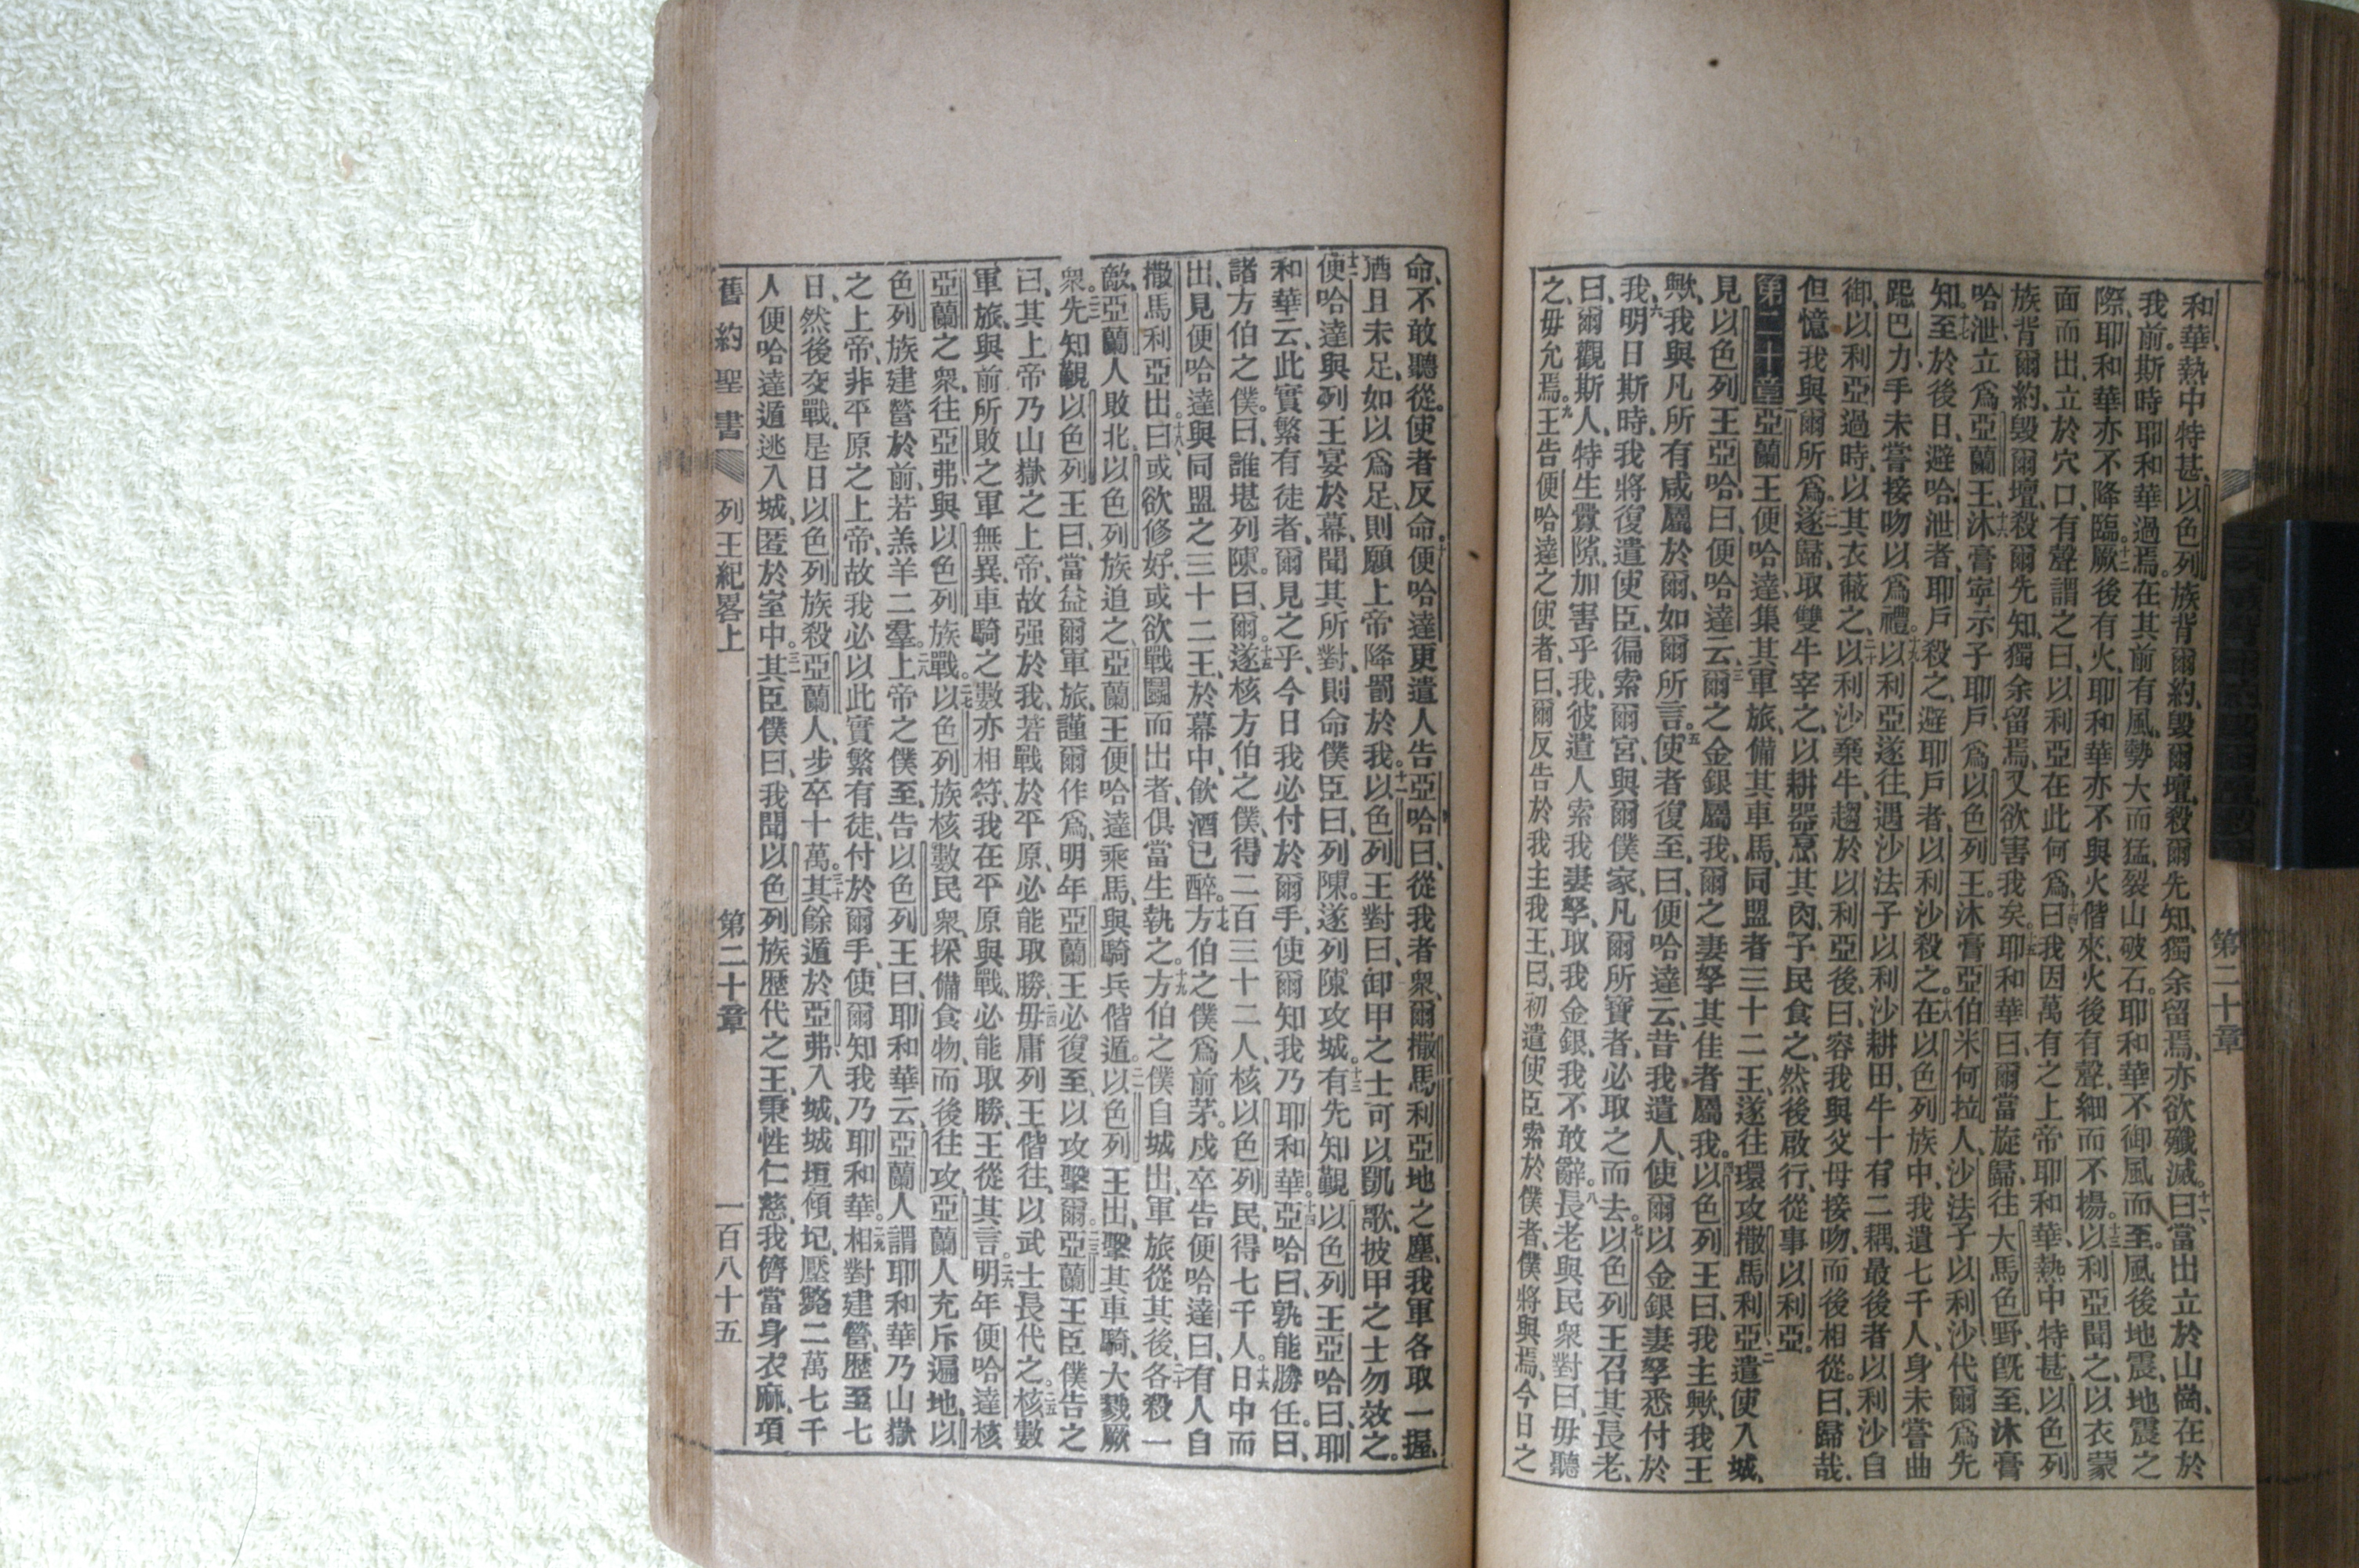 第二十章
和華熱中特甚、以色列族背爾約、毀爾壇、殺爾先知、獨余留焉、亦欲殲滅。十一曰、當出立於山崗、在於
我前。斯時耶和華過焉。在其前有風、勢大而猛、裂山破石。耶和華不御風而至。風後地震、地震之
際、耶和華亦不降臨。十二厥後有火、耶和華亦不與火偕來、火後有聲、細而不揚。十三以利亞聞之、以衣蒙
面而出、立於穴口、有聲謂之曰、以利亞在此何爲。十四曰、我因萬有之上帝耶和華、熱中特甚、以色列
族背爾約、毀爾壇、殺爾先知、獨余留焉、又欲害我矣。十五耶和華曰、爾當旋歸、往大馬色野、旣至、沐膏
哈泄、立爲亞蘭王、十六沐膏寧示子耶戶、爲以色列王。沐膏亞伯米何拉人、沙法子以利沙、代爾爲先
知。十七至於後日、避哈泄者、耶戶殺之、避耶戶者、以利沙殺之。十八在以色列族中、我遺七千人、身未嘗曲
跽巴力、手未嘗接吻以爲禮。十九以利亞遂往、遇沙法子以利沙耕田、牛十有二耦、最後者以利沙自
御、以利亞過時、以其衣蔽之、二十以利沙棄牛、趨於以利亞後、曰、容我與父母接吻、而後相從。曰、歸哉、
但憶我與爾所爲。二一遂歸、取雙牛宰之、以耕器烹其肉、予民食之、然後啟行、從事以利亞。
第二十章一亞蘭王便哈達集其軍旅、備其車馬、同盟者三十二王、遂往環攻撒馬利亞、二遣使入城、
見以色列王亞哈、曰、便哈達云、三爾之金銀屬我、爾之妻孥其佳者屬我。四以色列王曰、我主歟、我王
歟、我與凡所有、咸屬於爾、如爾所言。五使者復至、曰、便哈達云、昔我遣人、使爾以金銀妻孥悉付於
我、六明日斯時、我將復遣使臣、徧索爾宮、與爾僕家、凡爾所寶者、必取之而去。七以色列王召其長老、
曰、爾觀斯人、特生釁隙、加害乎我、彼遣人索我妻孥、取我金銀、我不敢辭。八長老與民衆對曰、毋聽
之、毋允焉。九王告便哈達之使者、曰、爾反告於我主我王、曰、初遣使臣索於僕者、僕將與焉、今日之
命、不敢聽從。使者反命。十便哈達更遣人告亞哈曰、從我者衆、爾撒馬利亞地之塵、我軍各取一握、
酒且未足、如以爲足、則願上帝降罰於我。十一以色列王對曰、卸甲之士可以凱歌、披甲之士勿效之。
十二便哈達與列王宴於幕、聞其所對、則命僕臣曰、列陳。遂列陳攻城。十三有先知覲以色列王亞哈曰、耶
和華云、此實繁有徒者、爾見之乎、今日我必付於爾手、使爾知我乃耶和華。十四亞哈曰、孰能勝任。曰、
諸方伯之僕。曰、誰堪列陳。曰、爾。十五遂核方伯之僕、得二百三十二人、核以色列民、得七千人。十六日中而
出、見便哈達與同盟之三十二王、於幕中、飲酒已醉。十七方伯之僕爲前茅。戍卒告便哈達曰、有人自
撒馬利亞出。十八曰、或欲修好、或欲戰鬪而出者、俱當生執之。十九方伯之僕自城出、軍旅從其後、二十各殺一
敵、亞蘭人敗北、以色列族追之、亞蘭王便哈達乘馬、與騎兵偕遁。二一以色列王出、擊其車騎、大戮厥
衆。二二先知覲以色列王曰、當益爾軍旅、謹爾作爲、明年亞蘭王必復至、以攻擊爾。二三亞蘭王臣僕告之
曰、其上帝乃山嶽之上帝、故强於我、若戰於平原、必能取勝、二四毋庸列王偕往、以武士長代之。二五核數
軍旅、與前所敗之軍無異、車騎之數亦相符、我在平原與戰、必能取勝、王從其言。二六明年便哈達核
亞蘭之衆、往亞弗、與以色列族戰。二七以色列族核數民衆、採備食物、而後往攻、亞蘭人充斥遍地、以
色列族建營於前、若羔羊二羣。二八上帝之僕至、告以色列王曰、耶和華云、亞蘭人謂耶和華乃山嶽
之上帝、非平原之上帝、故我必以此實繁有徒、付於爾手、使爾知我乃耶和華。二九相對建營、歷至七
日、然後交戰、是日以色列族殺亞蘭人、步卒十萬。三十其餘遁於亞弗、入城、城垣傾圮、壓斃二萬七千
人、便哈達遁逃入城、匿於室中。三一其臣僕曰、我聞以色列族歷代之王、秉性仁慈、我儕當身衣麻、項
舊約聖書 列王紀畧上 第二十章 一百八十五